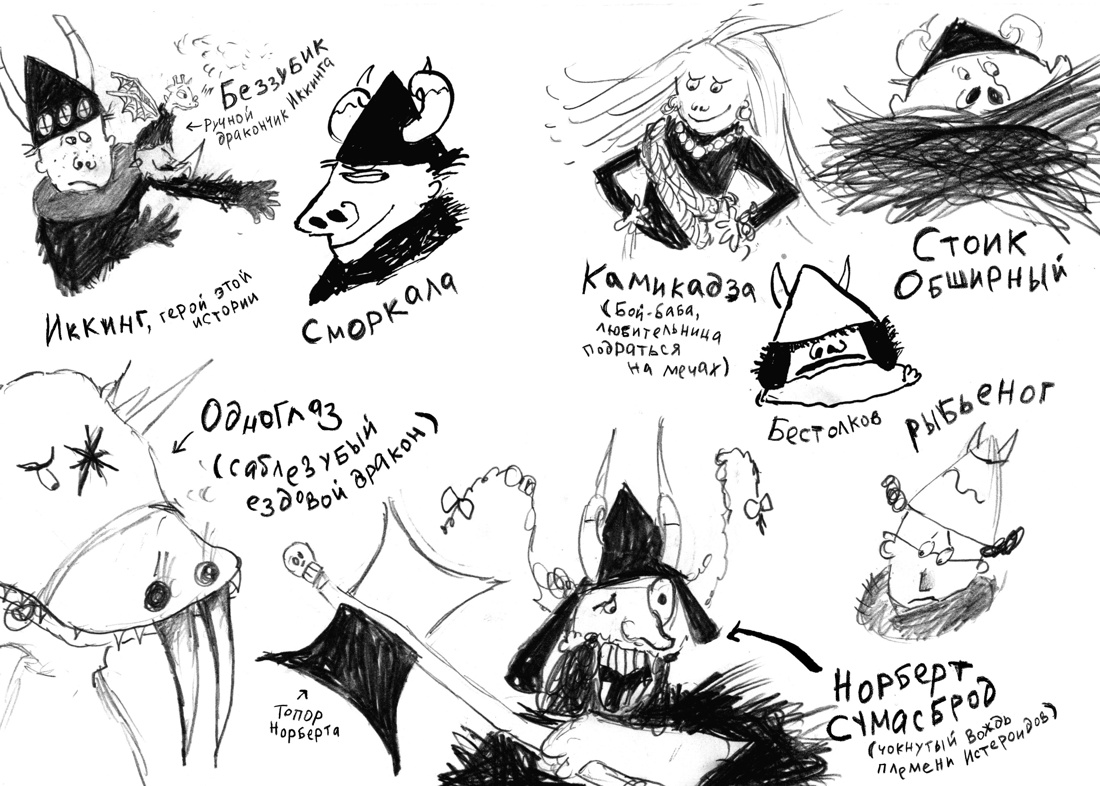 Беззубик
Ручной
дракончик Иккинга
Иккинг, герой этой
истории
Сморкала
Камикадза
(Бой-баба,
любительница
подраться
на мечах)
Стоик
Обширный
Бестолков
Рыбьеног
Одноглаз
(саблезубый
ездовой дракон)
Топор
Норберта
Норберт
Сумасброд
(чокнутый вождь
племени Истероидов)